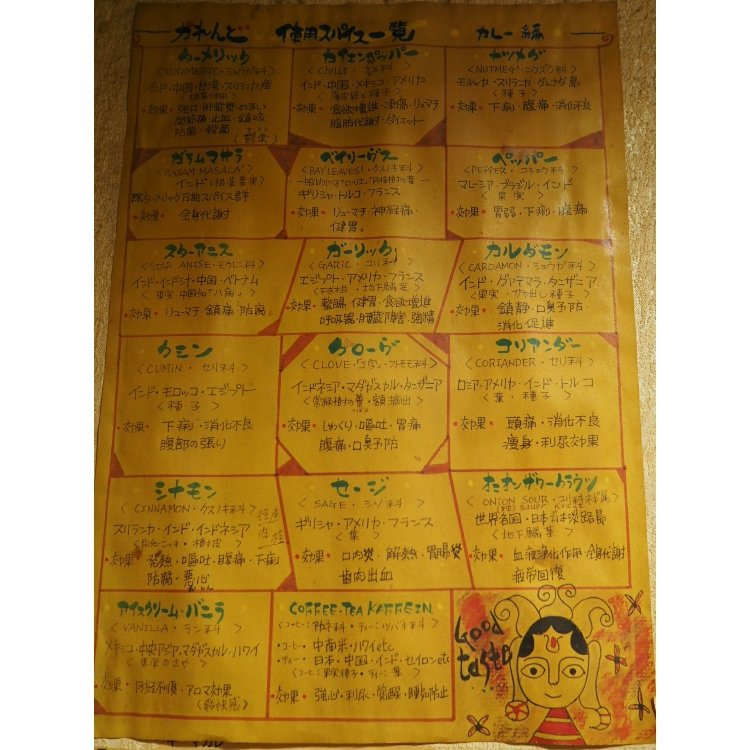 かれんど 使用スパイス一覧 カレー編
ターメリック
<TURMERIC・ショウガ科>
インド・中国・台湾・スリランカ産
・効果・強壮・肝臓薬・めまい
関節痛・止血・鎮咳
防腐・殺菌
カイエンペッパー
<CHILLI・ナス科>
インド・中国・メキシコ・アメリカ
・効果・食欲増進・凍傷・リュウマチ
脂肪代謝・ダイエット
ナツメグ
<NUTMEG・ニクズク科>
モルッカ・スリランカ・グレナダ島
(種子)
・効果・下痢・腹痛・消化不良
ガラムマサラ
<GARAM MASALA>
インド
・効果・全身代謝
ベイリーヴス
<BAY LEAVES・クスノキ科>
ギリシャ・トルコ・フランス
・効果・リューマチ・神経痛・
健胃。
ペッパー
<PEPPER・コショウ科>
マレーシア・ブラジル・インド
(果実)
・効果・胃弱・下痢・腹痛
スターアニス
<STAR ANISE・モクレン科>
インド・インドシナ・中国・ベトナム
<果実・中国名「八角」>
・効果・リュマチ・鎮痛・防腐
ガーリック
<GARIC・ユリ科>
エジプト・アメリカ・フランス
・効果・整腸・健胃・食欲増進
呼吸器・肝臓障害・強精
カルダモン
<CARDAMON・ショウガ科>
インド・グァテマラ・タンザニア
・効果・鎮静・口臭予防・
消化促進
クミン
<CUMIN・セリ科>
インド・モロッコ・エジプト
<種子>
・効果・下痢・消化不良
腹部の張り
クローヴ
<CLOVE・フトモモ科>
インドネシア・マダガスカル・タンザニア
・効果・しゃっくり・嘔吐・胃痛
腹痛・口臭予防
コリアンダー
<CORIANDER・セリ科>
ロシア・アメリカ・インド・トルコ
<葉・種子>
・効果・頭痛・消化不良
痩身・利尿効果
シナモン
<CINNAMON・クスノキ科>
スリランカ・インド・インドネシア
・効果・発熱・嘔吐・腹痛・下痢
防腐・悪心
セージ
<SAGE・シソ科>
ギリシャ・アメリカ・フランス
(葉)
・効果・口内炎・解熱・胃腸炎
歯肉出血
<ONION SOUR・ユリ科ネギ属>
世界各国・日本では淡路島
(地下鱗茎)
・効果・血液浄化作用・全身代謝
疲労回復
アイスクリーム・バニラ
<VANILLA・ラン科>
メキシコ・中央アジア・マダガスカル・ハワイ
<果実のさや>
・効果・月経不順・アロマ効果
COFFEE・TEA KAFFEIN
<コーヒー:アカネ科・ティー:ツバキ科>
・コーヒー・中南米・ハワイetc
・ティー・日本・中国・インド・セイロンetc
・効果・強心・利尿・覚醒・睡魔防止
Good
taste